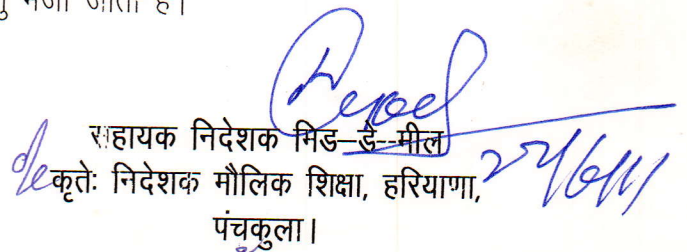 भेजा जाता है।
सहायक निदेशक मिड–डे--मील
कृतेः निदेशक मौलिक शिक्षा, हरियाणा,
पंचकुला।